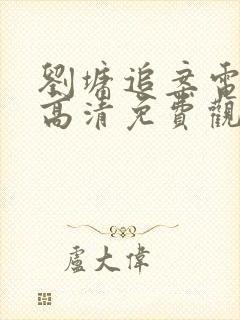 劉墉追案電
高清免費觀
盧大偉